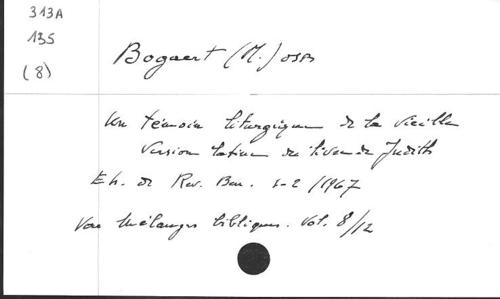 313A
135
(8)
Bogaert (M.) OSB
Un témoin liturgique de la vieille
version latine du livre de Judith
Ext. de Rev. Ben. 1-2/1967
Voir Mélanges bibliques. Vol. 8/12